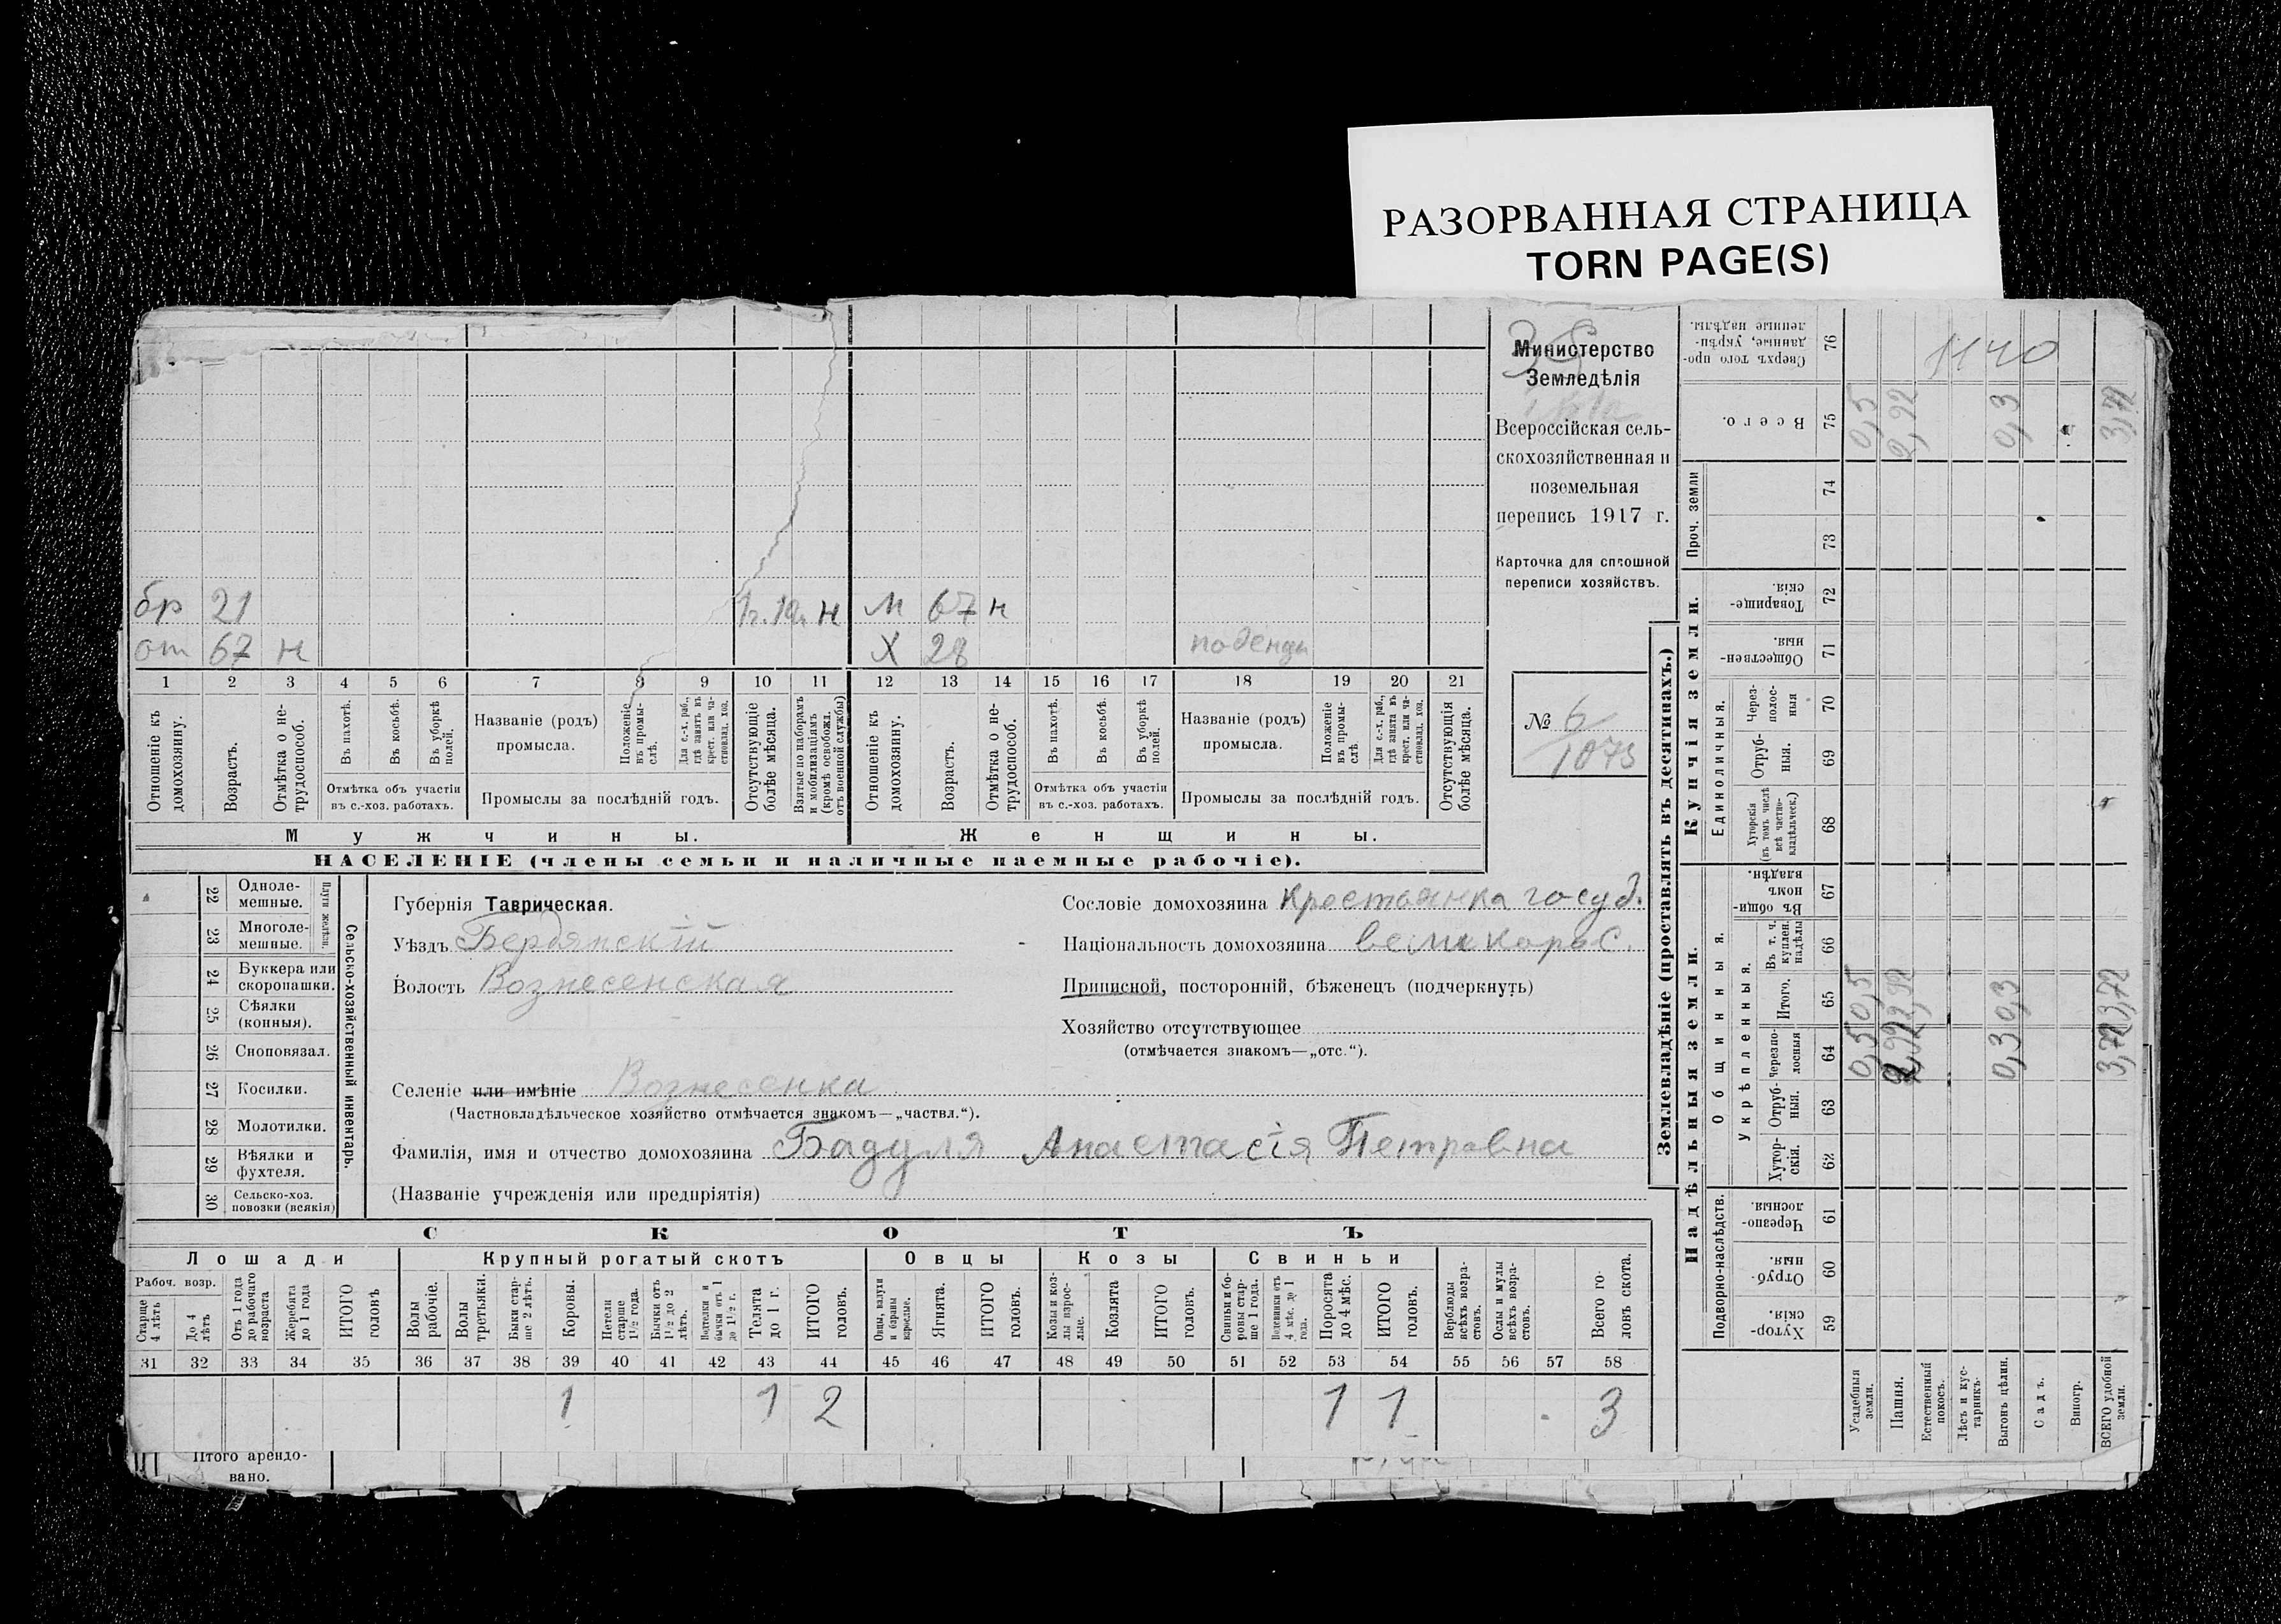 РАЗОРВАННАЯ СТРАНИЦА
TORN PAGE(S)
Министерство
Земледѣлія
Всероссійская сель-
скохозяйственная и
поземельная
перепись 1917 г.
Карточка для сплошной
переписи хозяйствъ.
№ 6
1073
бр 21 н м 67 н
от 67 н х 28 поденщ
1 2 3 4 5 6 7 8 9 10 11 12 13 14 15 16 17 18 19 20 21
Отношеніе къ домохозяину.
Возрастъ.
Отмѣтка о не-трудоспособ.
Въ пахотѣ.
Въ косьбѣ.
Въ уборкѣ полей.
Отмѣтка объ участіи
въ с.-хоз. работахъ.
Названіе (родъ)
промысла.
Положеніе въ промы-слѣ.
Для с.-х. раб., гдѣ занятъ въ крест. или ча-стновлад. хоз.
Промыслы за послѣдній годъ.
Отсутствующіе болѣе мѣсяца.
Взятые по наборамъ и мобилизаціямъ (кромѣ освобожд. отъ военной службы)
Отношеніе къ домохозяину.
Возрастъ.
Отмѣтка о не-трудоспособ.
Въ пахотѣ.
Въ косьбѣ.
Въ уборкѣ полей.
Отмѣтка объ участіи
въ с.-хоз. работахъ.
Названіе (родъ)
промысла.
Положеніе въ промы-слѣ.
Для с.-х. раб., гдѣ занята въ крест. или ча-стновлад. хоз.
Промыслы за послѣдній годъ.
Отсутствующія болѣе мѣсяца.
Мужчины. Женщины.
НАСЕЛЕНІЕ (члены семьи и наличные наемные рабочіе).
Сельско-хозяйственный инвентарь.
Плуги желѣзн.
22 Одноле-мешные.
23 Многоле-мешные.
24 Буккера или скоропашки.
25 Сѣялки (конныя).
26 Сноповязал.
27 Косилки.
28 Молотилки.
29 Вѣялки и фухтеля.
30 Сельско-хоз. повозки (всякія)
Губернія Таврическая.
Уѣздъ Бердянскій
Волость Вознесенская
Сословіе домохозяина крестьянка госуд.
Національность домохозяина великорос.
Приписной, посторонній, бѣженецъ (подчеркнуть)
Хозяйство отсутствующее
(отмѣчается знакомъ—„отс.“).
Селеніе или имѣніе Вознесенка
(Частновладѣльческое хозяйство отмѣчается знакомъ—„частвл.“).
Фамилія, имя и отчество домохозяина Бадуля Анастасія Петровна
(Названіе учрежденія или предпріятія)
СКОТЪ
Лошади Крупный рогатый скотъ Овцы Козы Свиньи
Рабоч. возр.
Старше 4 лѣтъ
До 4 лѣтъ
Отъ 1 года до рабочаго возраста
Жеребята до 1 года
ИТОГО головъ
Волы рабочіе.
Волы третьяки.
Быки стар-ше 2 лѣтъ.
Коровы.
Нетели старше 1½ года.
Бычки отъ 1½ до 2 лѣтъ.
Телята до 1 г.
ИТОГО головъ.
Овцы, валухи и бараны взрослые.
Ягнята.
ИТОГО головъ.
Козы и коз-лы взрос-лые.
Козлята
ИТОГО головъ.
Свиньи и бо-ровы стар-ше 1 года.
Подсвинки отъ 4 мѣс. до 1 года.
Поросята до 4 мѣс.
ИТОГО головъ.
Верблюды всѣхъ возра-стовъ.
Ослы и мулы всѣхъ возра-стовъ.
Всего го-ловъ скота.
31 32 33 34 35 36 37 38 39 40 41 42 43 44 45 46 47 48 49 50 51 52 53 54 55 56 57 58
1 1 2 1 1 3
Итого арендо-
вано.
Землевладѣніе (проставлять въ десятинахъ.)
Надѣльныя земли. Купчія земли.
Подворно-наслѣдств.
Общинныя.
Укрѣпленныя.
Единоличныя.
Проч. земли
Сверхъ того про-данные, укрѣп-ленные надѣлы.
76
1140
Всего.
75
0,5 2,92 0,3 3,72
74
73
Товарище-скія. 72
Обществен-ныя. 71
Через-полос-ныя 70
Отруб-ныя. 69
Хуторскія (въ томъ числѣ всѣ частно-владѣльческ.) 68
Въ общин-номъ владѣн. 67
Въ т. ч. куплен. надѣлы 66
Итого. 65 0,5 2,92 0,3 3,72
Черезпо-лосныя 64 0,5 2,92 0,3 3,72
Отруб-ныя. 63
Хутор-скія. 62
Черезпо-лосныя. 61
Отруб-ныя. 60
Хутор-скія. 59
Усадебныя земли.
Пашня.
Естественный покосъ.
Лѣсъ и кус-тарникъ.
Выгонъ цѣлин.
Садъ.
Виногр.
ВСЕГО удобной земли.